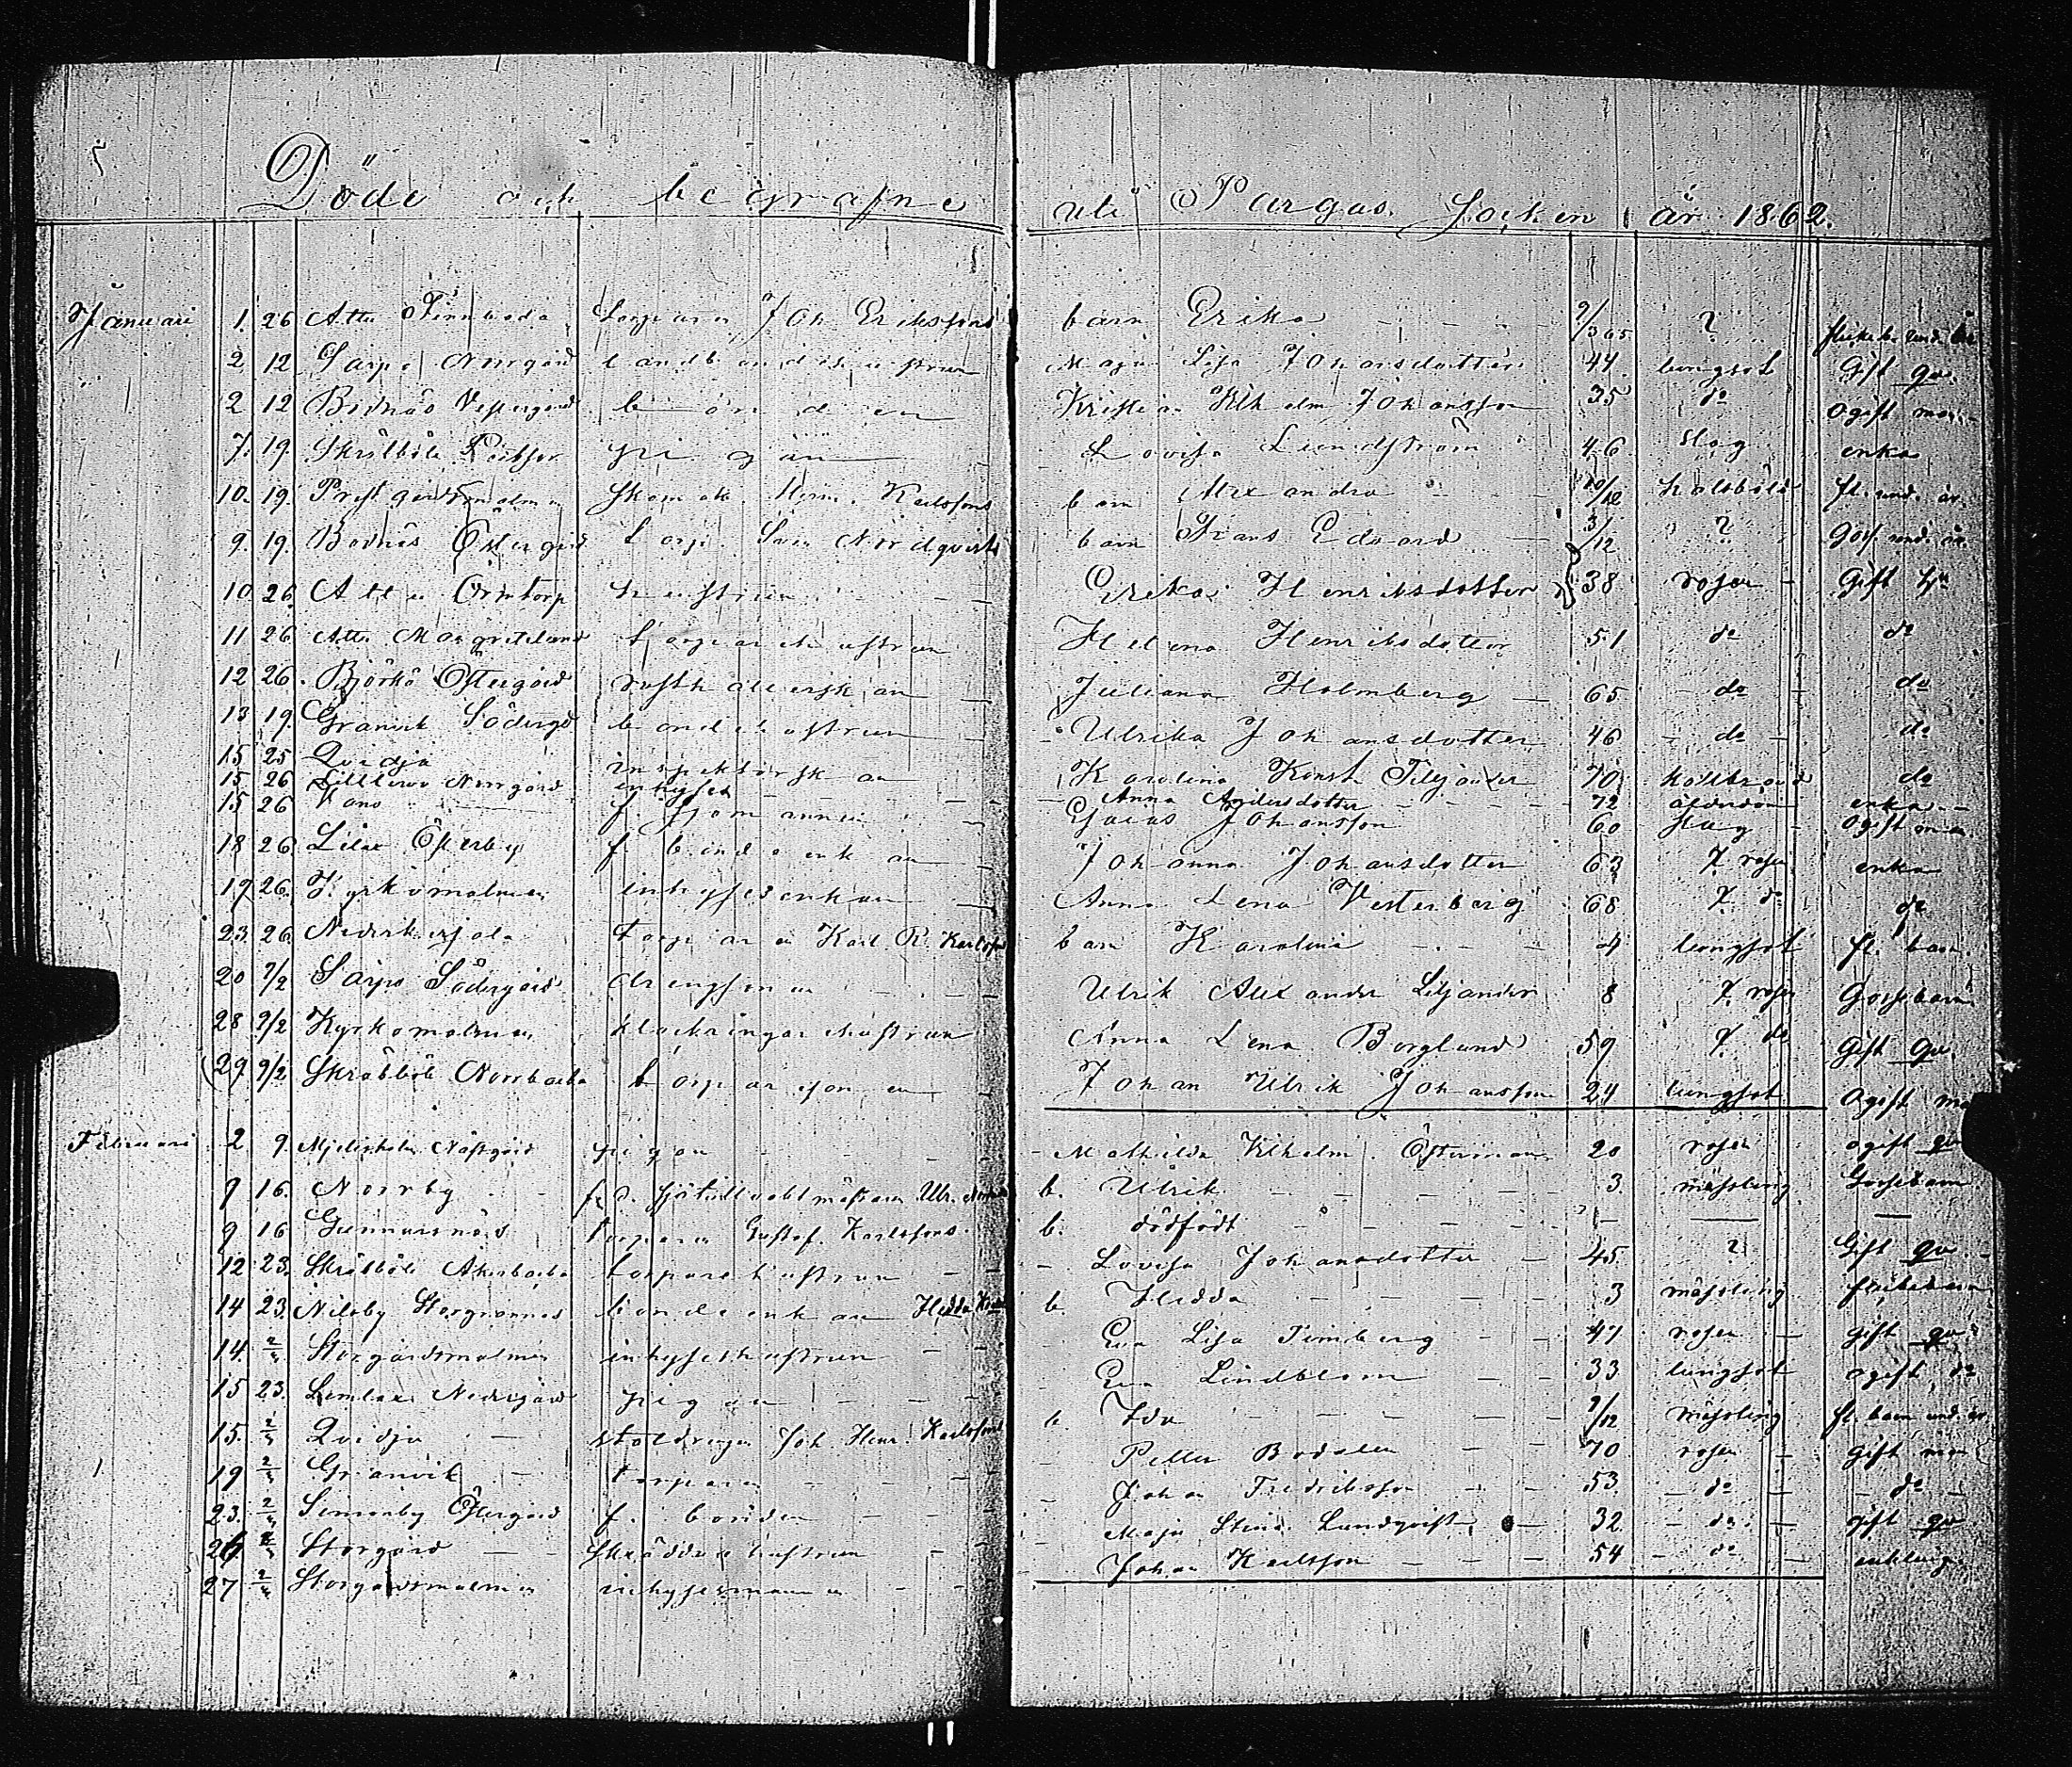 Döde och begrafne uti Pargas Socken år 1862.
Januari 1. 26 Attu Finnboda torparen Joh Erikssons barn Erika 9/365 ? flickeb. und. år
2 12 Sarpo Norrgård landbondehustrun Maja Lisa Johansdotter 44 lungsot Gift qv.
2 12 Bodnäs Vestergård bonden Kristian Vilhelm Johansson 35 do ogift man
7. 19. Skräbböle pigan Lovisa Lindström 46 slag enka
10. 19. Prestgårdsmalmen skomak. Herm. Karlssons barn Alexandra 10/12 halsböld fl. und. år
9. 19. Bodnäs Östergård torp. Sven Nordqvists barn Frans Edvard 3/12 ? Goss. und. år
10 26. Attu Örntorp hustrun Erika Henriksdotter 38 rosen Gift qv
11 26 Attu Margretelund torparehustrun Helena Henriksdotter 51 do do
12 26. Björkö Östergård rusthållerskan Juliana Holmberg 65 do do
13 19. Granvik Södergd bondehustrun Ulrika Johansdotter 46 do do
15 25 Qvidja inspektorskan Karolina Konst. Tiljander 70 kallbrand do
15 26 Lillervo Norrgård inhyses Anna Andersdotter 72 ålderdom enka
15 26 Vano f. sjömannen Johansson 60 slag ogift man
18 26. Lilax Österby f bondeenkan Johanna Johansdotter 63 T. rosen enka
19 26. Kyrkomalmen inhysesenkan Anna Lena Vesterberg 68 T. do do
23. 26. Nederkirjala torparen Karl R. Karlsson barn Karolina 4 lungsot fl. barn
20 9/2 Sarpo Södergård drengsonen Ulrik Alexander Liljander 8 T. rosen Gossebarn
28 9/2 Kyrkomalmen klockringarehustrun Anna Lena Borglund 59 T. do Gift qv.
29 9/2 Skräbböle Norrbacka torparesonen Johan Ulrik Johansson 24 lungsot Ogift man
Februari 2 9. Mjelisholm Näsgård pigan Mathilda Vilhelm. Österman 20 rosen ogift qv
9 16. Norrby f. d. sjötullvaktmästaren Ulr. b. Ulrik 3. mässling Gossebarn
9 16 Gunnarsnäs torparen Gustaf Karlssons b. dödfödt
12 23. Skräbböle Åkerbacka torparehustrun Lovisa Johansdotter 45 ? Gift qv
14 23. Nilsby Storgrannas bondeenkan Hedda b. Hedda 3 mässling flickebarn
14. 2/3 Storgårdsmalmen inhyseshustrun Eva Lisa Timberg 47 rosen gift qv
15 23. Lemlax Nedergård pigan Eva Lindblom 33 lungsot ogift do
15. 2/3 Qvidja statdrengen Joh. Henr. Karlssons b Ida 9/12 mässling fl. barn und. år
19 2/3 Granvik torparen Petter Bodalen 70 rosen gift man
23. 2/3 Simonby Östergård f. bonden Johan Fredriksson 53. do do
26 2/3 Storgård skräddarehustrun Maja Stina Lundqvist 32 do gift qv
27 2/3 Storgårdsmalmen inhysesmannen Johan Karlsson 54 do enkling